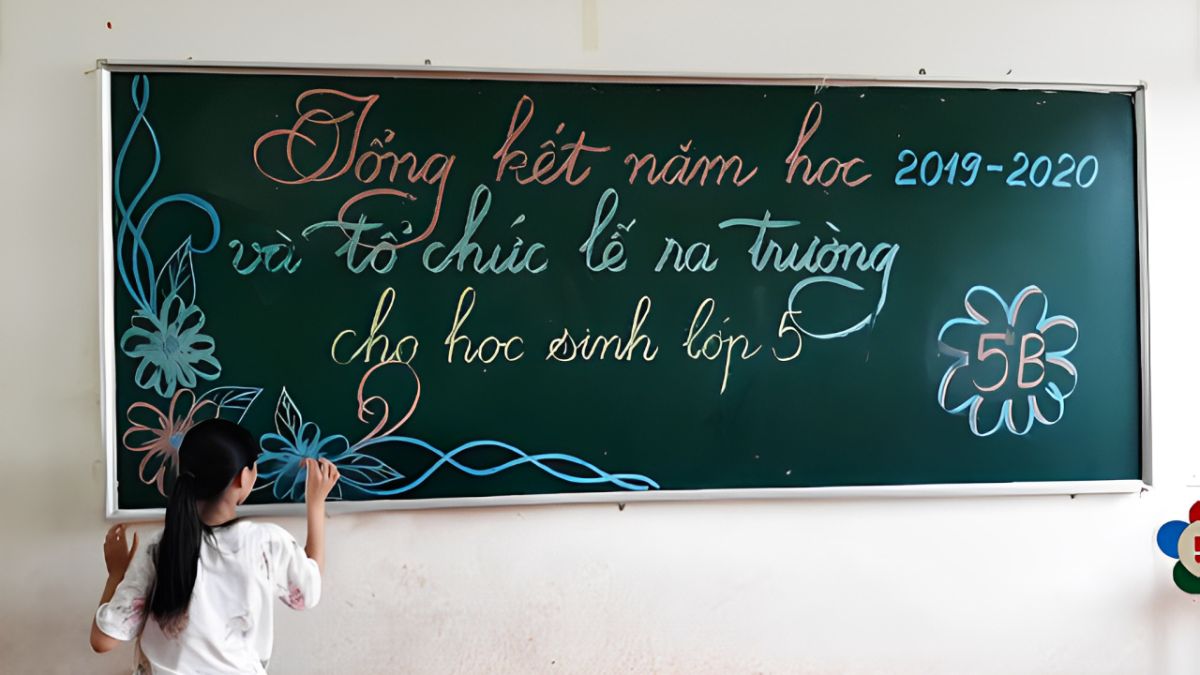 Tổng kết năm học 2019-2020
và tổ chức lễ ra trường
cho học sinh lớp 5
5B